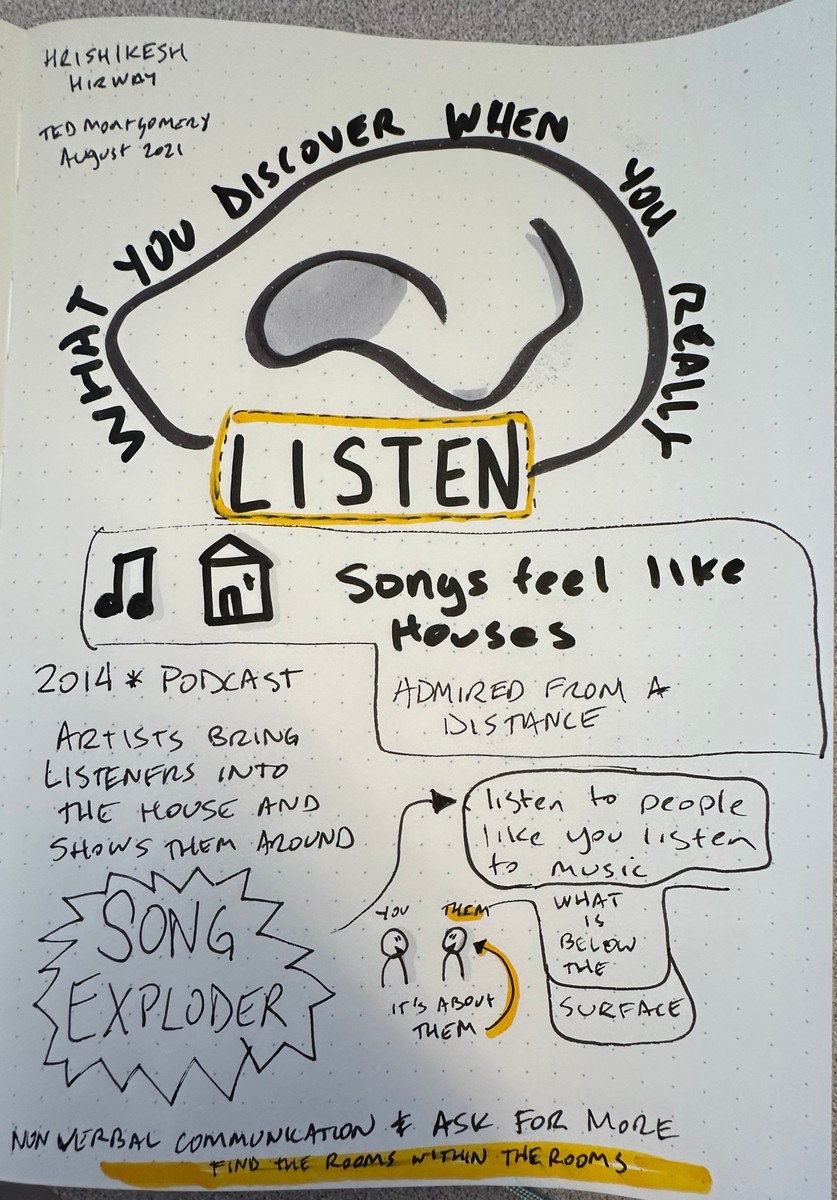 HRISHIKESH
HIRWAY
TED MONTGOMERY
August 2021
WHAT YOU DISCOVER WHEN YOU REALLY
LISTEN
Songs feel like
Houses
ADMIRED FROM A
DISTANCE
2014 * PODCAST
ARTISTS BRING
LISTENERS INTO
THE HOUSE AND
SHOWS THEM AROUND
SONG
EXPLODER
listen to people
like you listen
to music
YOU THEM
IT'S ABOUT
THEM
WHAT
IS
BELOW
THE
SURFACE
NON VERBAL COMMUNICATION & ASK FOR MORE
FIND THE ROOMS WITHIN THE ROOMS